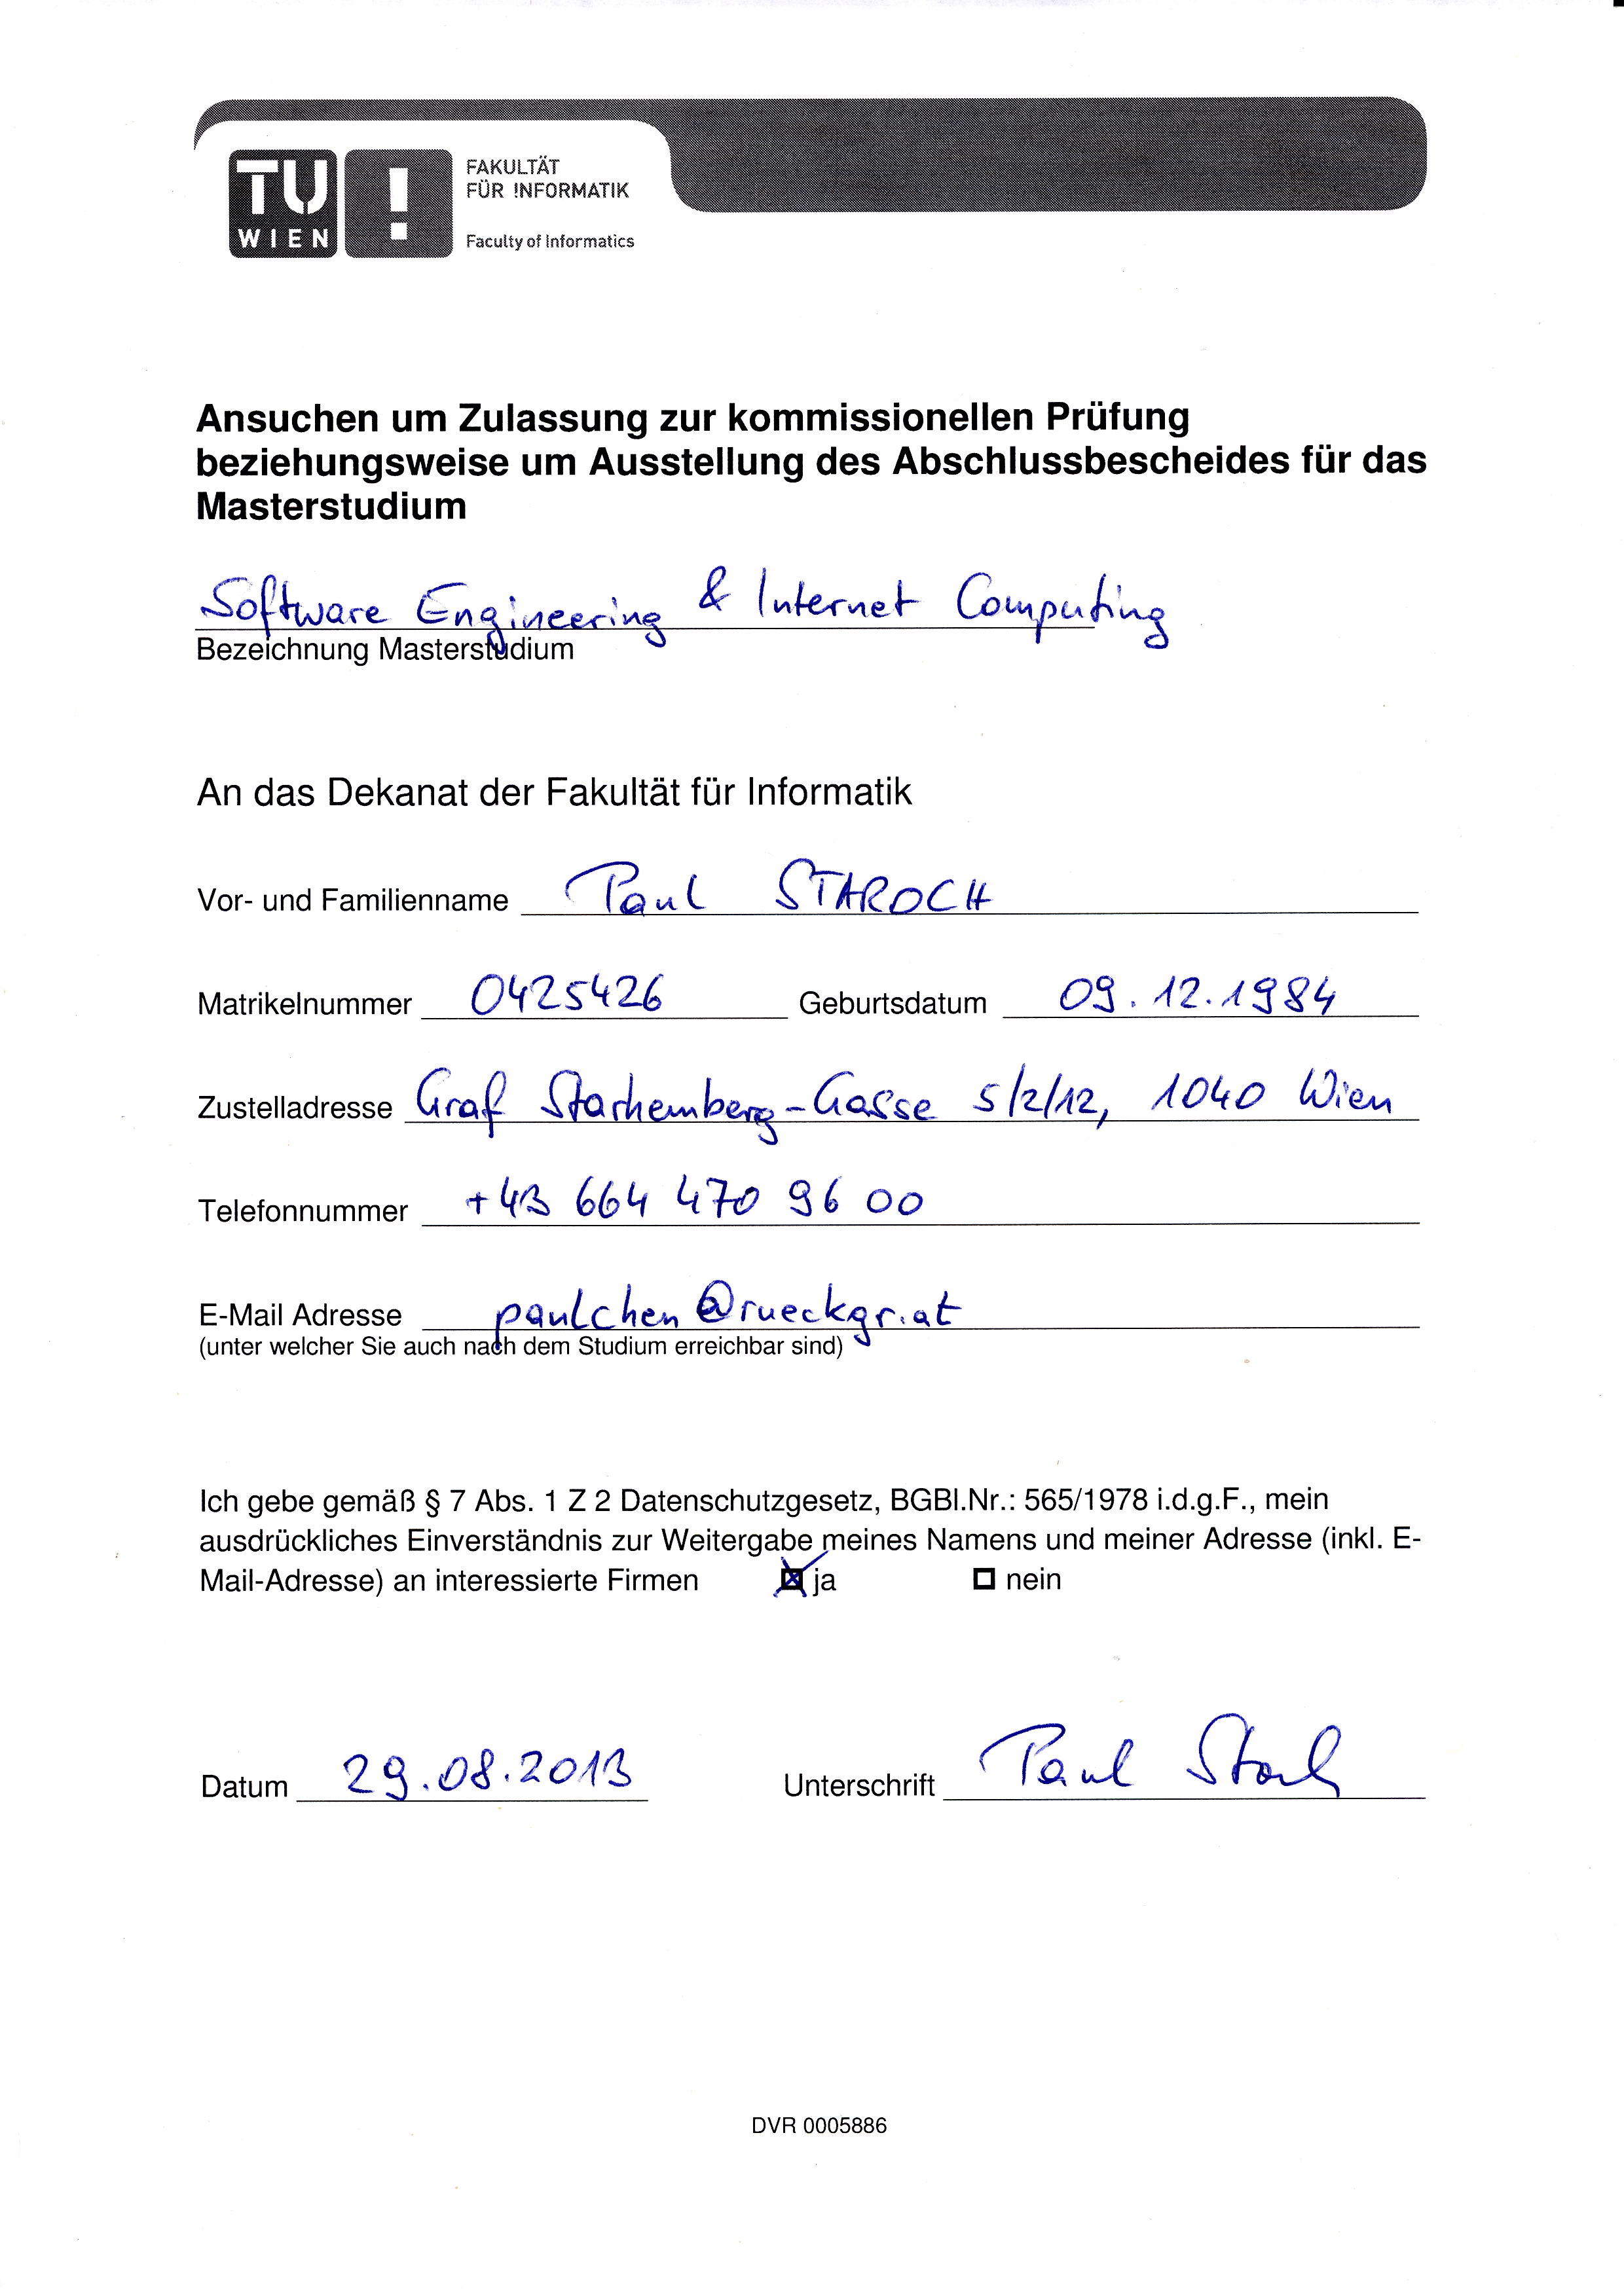 TU
WIEN
!
FAKULTÄT
FÜR !NFORMATIK
Faculty of Informatics
Ansuchen um Zulassung zur kommissionellen Prüfung
beziehungsweise um Ausstellung des Abschlussbescheides für das
Masterstudium
Software Engineering & Internet Computing
Bezeichnung Masterstudium
An das Dekanat der Fakultät für Informatik
Vor- und Familienname Paul STAROCH
Matrikelnummer 0425426 Geburtsdatum 09.12.1984
Zustelladresse Graf Starhemberg-Gasse 5/2/12, 1040 Wien
Telefonnummer +43 664 470 96 00
E-Mail Adresse paulchen@rueckgr.at
(unter welcher Sie auch nach dem Studium erreichbar sind)
Ich gebe gemäß § 7 Abs. 1 Z 2 Datenschutzgesetz, BGBl.Nr.: 565/1978 i.d.g.F., mein
ausdrückliches Einverständnis zur Weitergabe meines Namens und meiner Adresse (inkl. E-
Mail-Adresse) an interessierte Firmen ja nein
Datum 29.08.2013 Unterschrift Paul Staroch
DVR 0005886